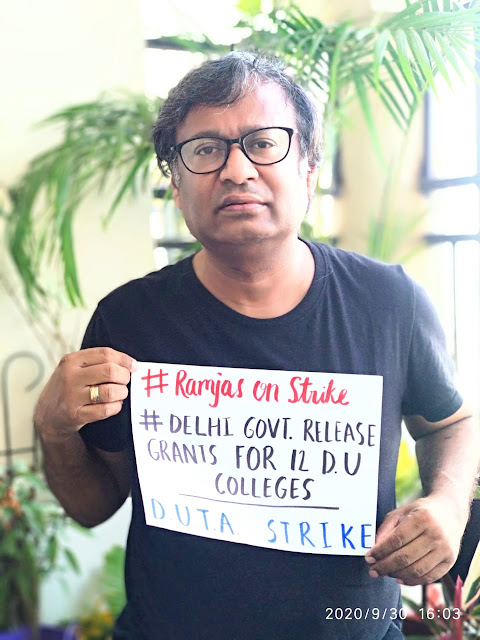 # Ramjas on Strike
# DELHI GOVT. RELEASE
GRANTS FOR 12 D.U
COLLEGES
D.U.T.A STRIKE
2020/9/30 16:03